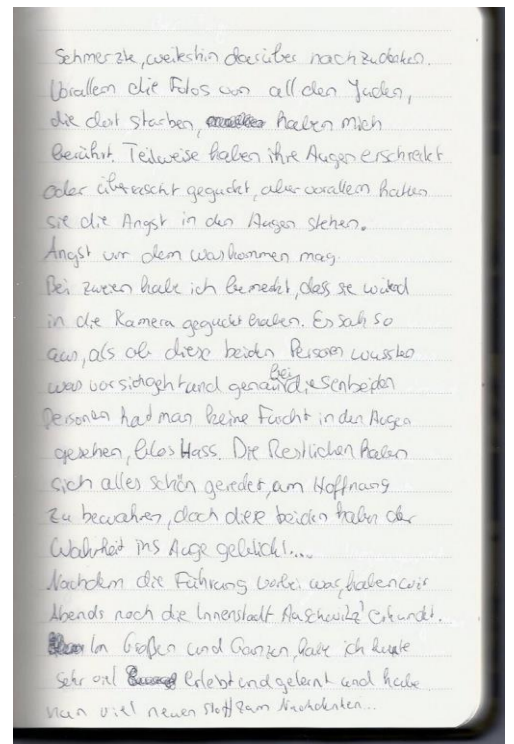 Schmerzte, weiterhin darüber nachzudenken.
Vorallem die Fotos von all den Juden,
die dort starben, haben mich
berührt. Teilweise haben ihre Augen erschreckt
oder überrascht geguckt, aber vorallem hatten
sie die Angst in den Augen stehen.
Angst vor dem was kommen mag.
Bei zweien habe ich bemerkt, dass sie wütend
in die Kamera geguckt haben. Es sah so
aus, als ob diese beiden Personen wussten
was vor sich geht und genau bei diesen beiden
Personen hat man keine Furcht in den Augen
gesehen, blos Hass. Die Restlichen haben
sich alles schön geredet, um Hoffnung
zu bewahren, doch diese beiden haben der
Wahrheit ins Auge geblickt....
Nachdem die Führung vorbei war, haben wir
Abends noch die Innenstadt Auschwitz' erkundet.
Im Großen und Ganzen, habe ich heute
sehr viel Erlebt und gelernt und habe
nun viel neuen Stoff zum Nachdenken...